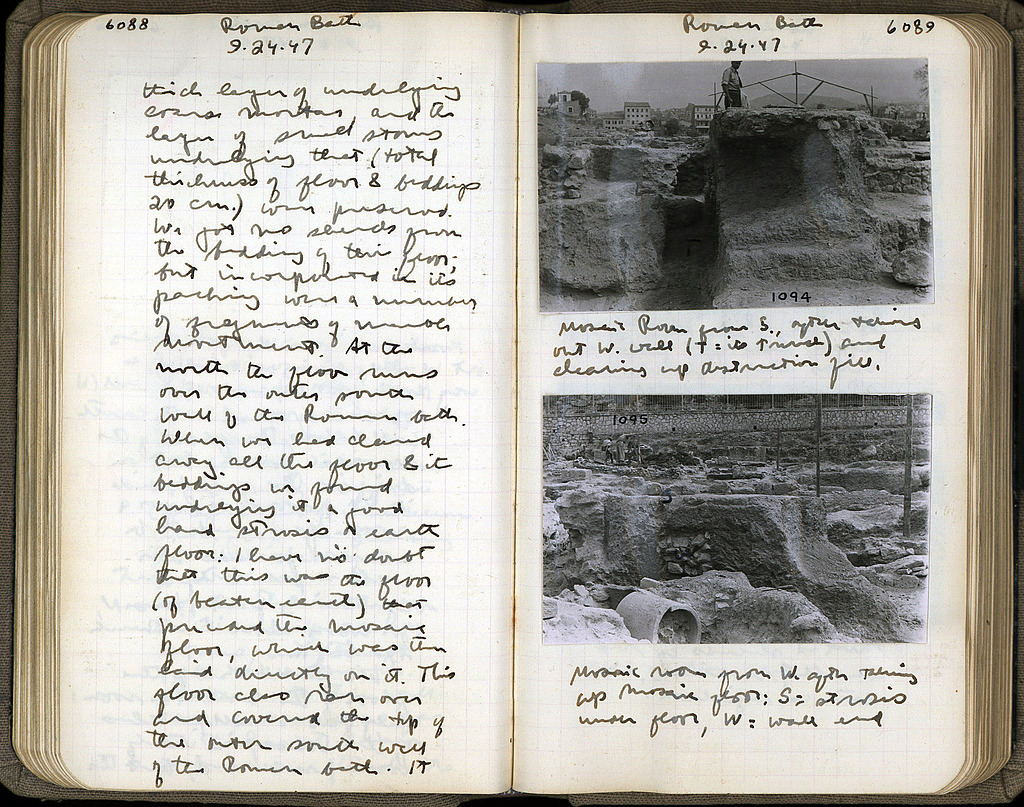 6088
Roman Bath
9.24.47
thick layer of underlying
coarse mortar, and the
layer of small stones
underlying that (total
thickness of floor & beddings
20 cm.) were preserved.
We got no sherds from
the bedding of this floor,
but incorporated in its
packing were a number
of fragments of marble
revetment. At the
north the floor runs
over the outer south
wall of the Roman bath.
When we had cleared
away all the floor & its
beddings we found
underlying it a good
hard strosis or earth
floor. I have no doubt
that this was the floor
(of beaten earth) that
preceded the mosaic
floor, which was then
laid directly on it. This
floor also ran over
and covered the top of
the outer south wall
of the Roman bath. It
Roman Bath
6089
9.24.47
1094
Mosaic Room from S., after taking
out W. wall (T = its trench) and
cleaning up destruction fill.
1095
Mosaic room from W. after taking
up mosaic floor: S = strosis
under floor, W = wall end